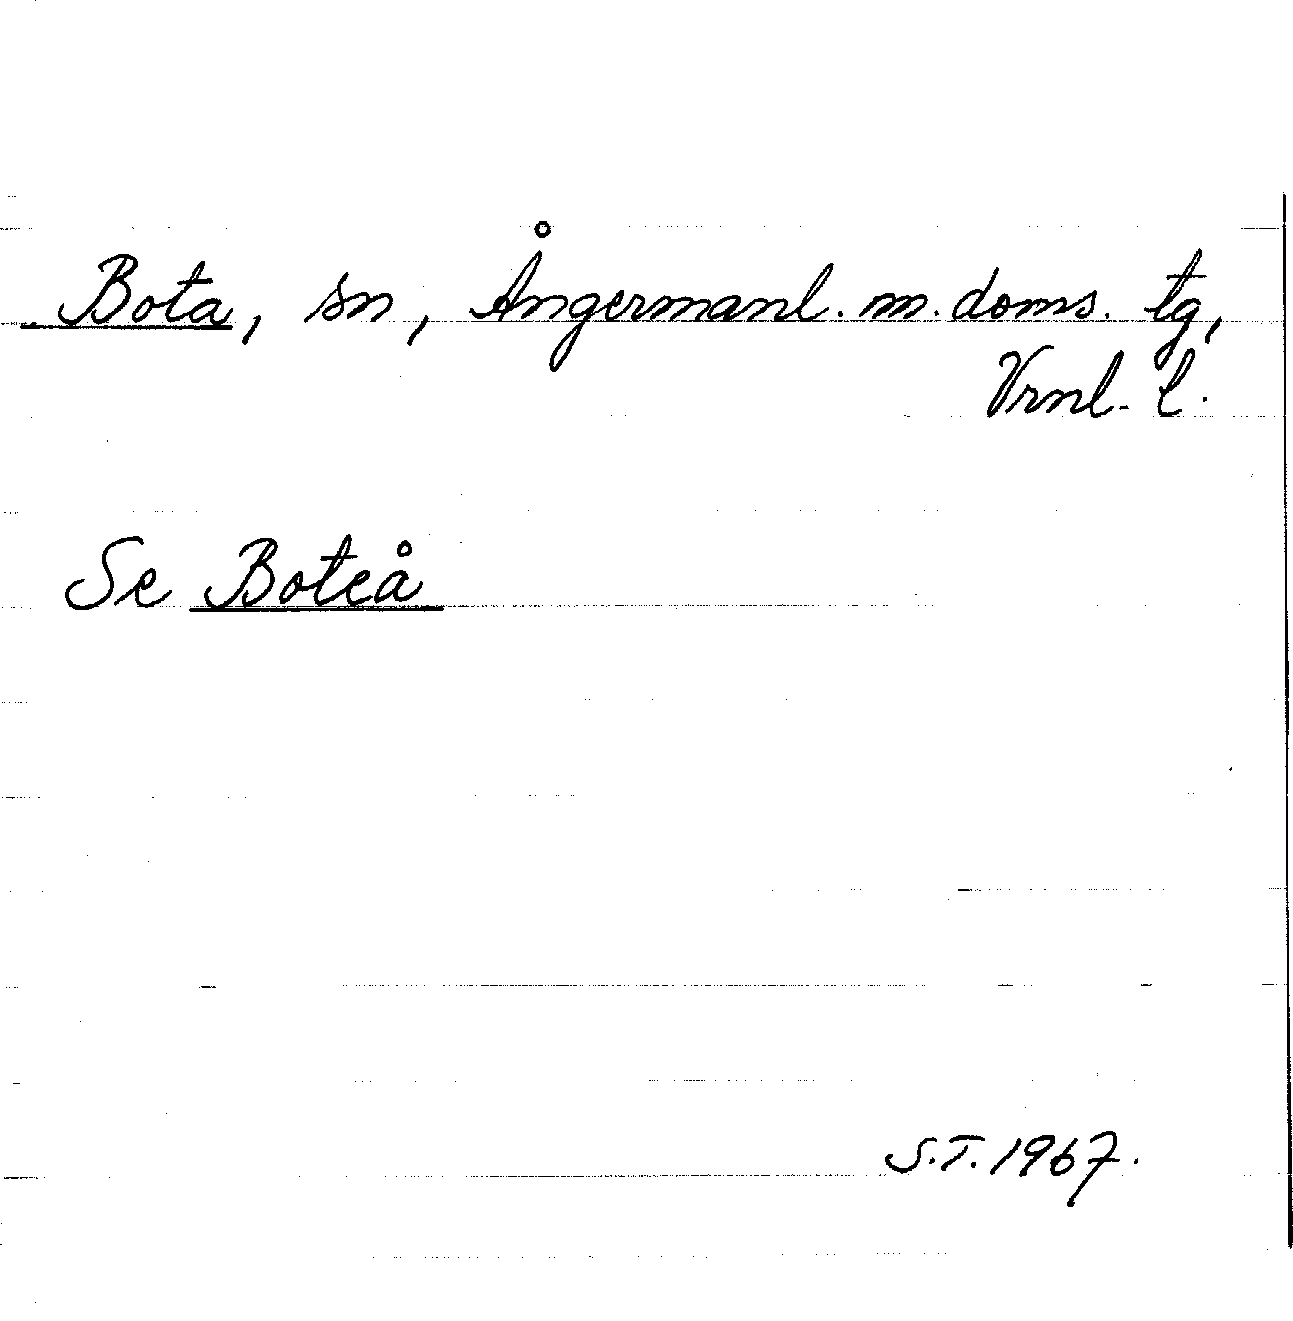 Bota, sn, Ångermanl. m. doms. tg,
Vrnl. l.
Se Boteå
S.T. 1967.